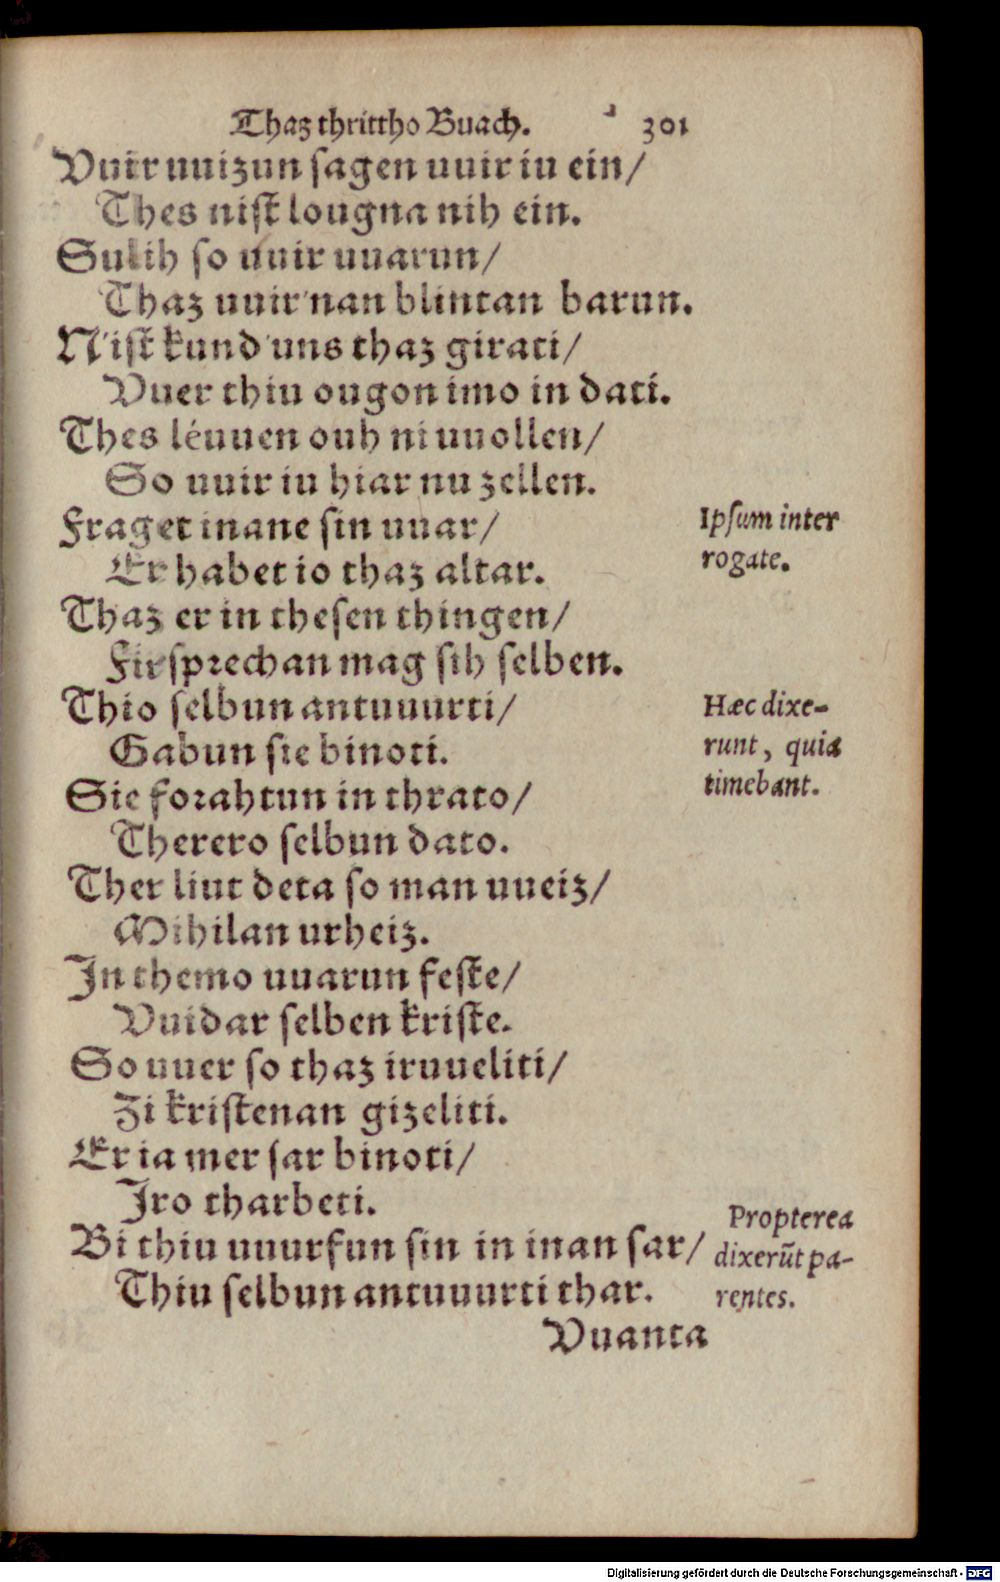 Thaz thrittho Buach. 301
Vuir uuizun sagen uuir iu ein/
Thes nist lougna nih ein.
Sulih so uuir uuarun/
Thaz uuir'nan blintan barun.
N'ist kund'uns thaz girati/
Vuer thiu ougon imo in dati.
Thes léuuen ouh ni uuollen/
So uuir iu hiar nu zellen.
Fraget inane sin uuar/
Er habet io thaz altar.
Ipsum inter
rogate.
Thaz er in thesen thingen/
Firsprechan mag sih selben.
Thio selbun antuuurti/
Gabun sie binoti.
Hæc dixe-
runt, quia
timebant.
Sie forahtun in thrato/
Therero selbun dato.
Ther liut deta so man uueiz/
Mihilan urheiz.
In themo uuarun feste/
Vuidar selben kriste.
So uuer so thaz iruueliti/
Zi kristenan gizeliti.
Er ia mer sar binoti/
Iro tharbeti.
Bi thiu uuurfun sin in inan sar/
Thiu selbun antuuurti thar.
Propterea
dixerũt pa-
rentes.
Vuanta
Digitalisierung gefördert durch die Deutsche Forschungsgemeinschaft - DFG